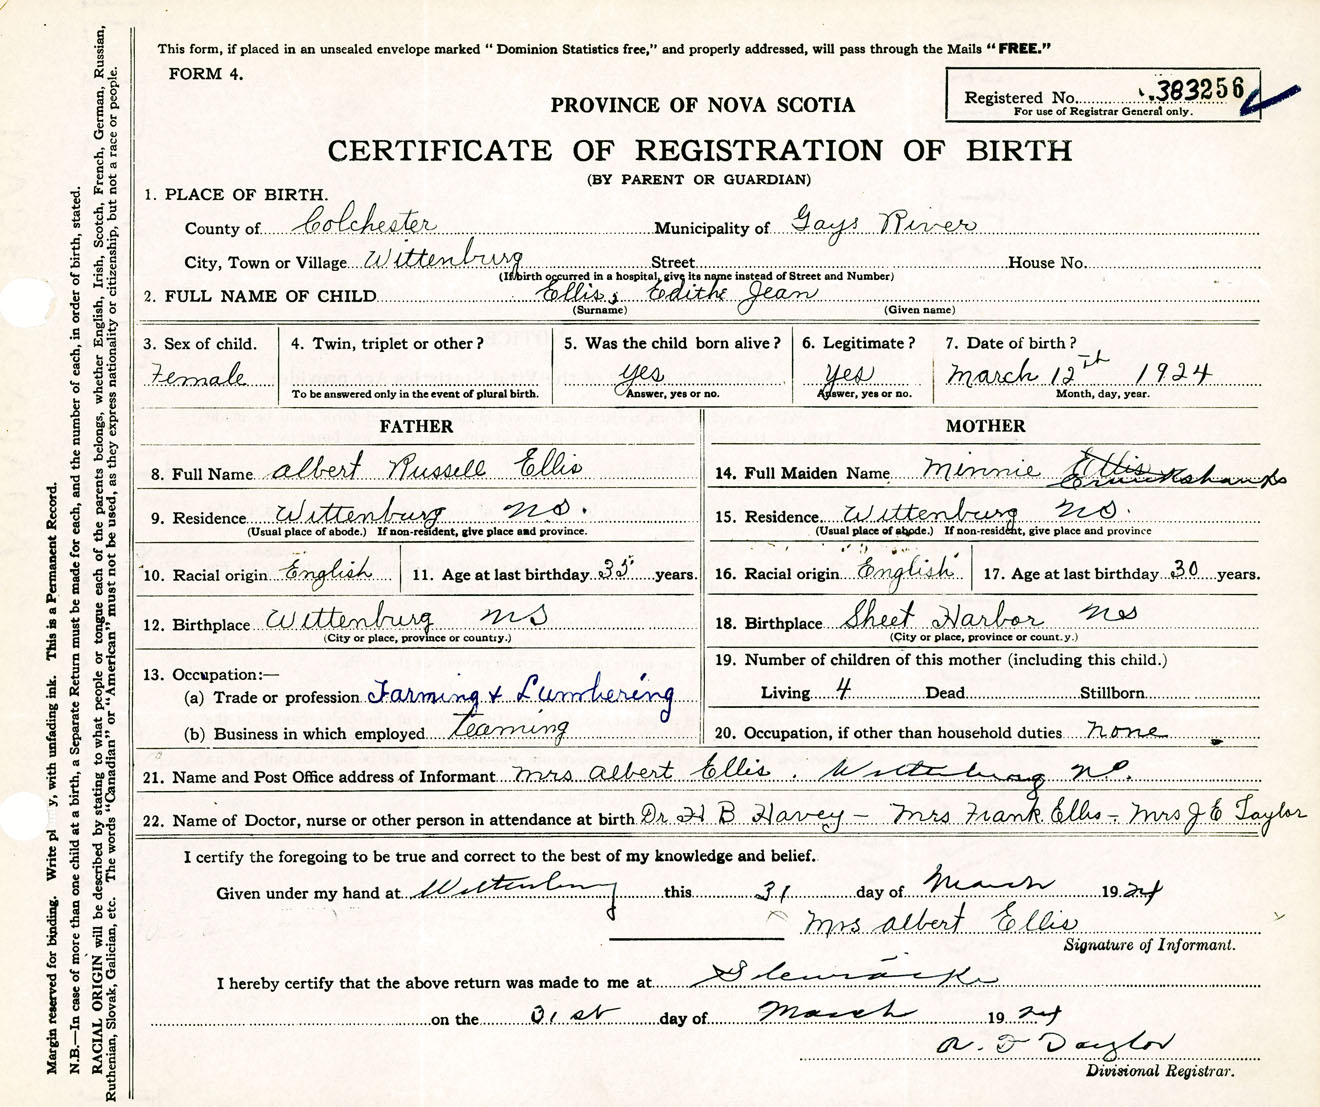 This form, if placed in an unsealed envelope marked "Dominion Statistics free," and properly addressed, will pass through the Mails "FREE."
FORM 4.
Registered No. 383256
For use of Registrar General only.
PROVINCE OF NOVA SCOTIA
CERTIFICATE OF REGISTRATION OF BIRTH
(BY PARENT OR GUARDIAN)
1. PLACE OF BIRTH.
County of Colchester Municipality of Gays River
City, Town or Village Wittenburg Street House No.
(If birth occurred in a hospital, give its name instead of Street and Number)
2. FULL NAME OF CHILD Ellis, Edith Jean
(Surname) (Given name)
3. Sex of child. 4. Twin, triplet or other? 5. Was the child born alive? 6. Legitimate? 7. Date of birth?
Female yes yes March 12th 1924
To be answered only in the event of plural birth. Answer, yes or no. Answer, yes or no. Month, day, year.
FATHER MOTHER
8. Full Name Albert Russell Ellis 14. Full Maiden Name Minnie Ellis Cruikshanks
9. Residence Wittenburg N.S. 15. Residence Wittenburg NS.
(Usual place of abode.) If non-resident, give place and province. (Usual place of abode.) If non-resident, give place and province
10. Racial origin English 11. Age at last birthday 35 years. 16. Racial origin English 17. Age at last birthday 30 years.
12. Birthplace Wittenburg NS 18. Birthplace Sheet Harbor NS
(City or place, province or country.) (City or place, province or country.)
13. Occupation:— 19. Number of children of this mother (including this child.)
(a) Trade or profession Farming & Lumbering Living 4 Dead Stillborn
(b) Business in which employed teaming 20. Occupation, if other than household duties none
21. Name and Post Office address of Informant Mrs Albert Ellis. Wittenburg N.S.
22. Name of Doctor, nurse or other person in attendance at birth Dr H B Havey – Mrs Frank Ellis – Mrs J E Taylor
I certify the foregoing to be true and correct to the best of my knowledge and belief.
Given under my hand at Wittenburg this 31 day of March 1924
Mrs Albert Ellis
Signature of Informant.
I hereby certify that the above return was made to me at
on the 31st day of March 1924
Taylor
Divisional Registrar.
Margin reserved for binding. Write pl y, with unfading ink. This is a Permanent Record.
N.B.—In case of more than one child at a birth, a Separate Return must be made for each, and the number of each, in order of birth, stated.
RACIAL ORIGIN will be described by stating to what people or tongue each of the parents belongs, whether English, Irish, Scotch, French, German, Russian,
Ruthenian, Slovak, Galician, etc. The words "Canadian" or "American" must not be used, as they express nationality or citizenship, but not a race or people.